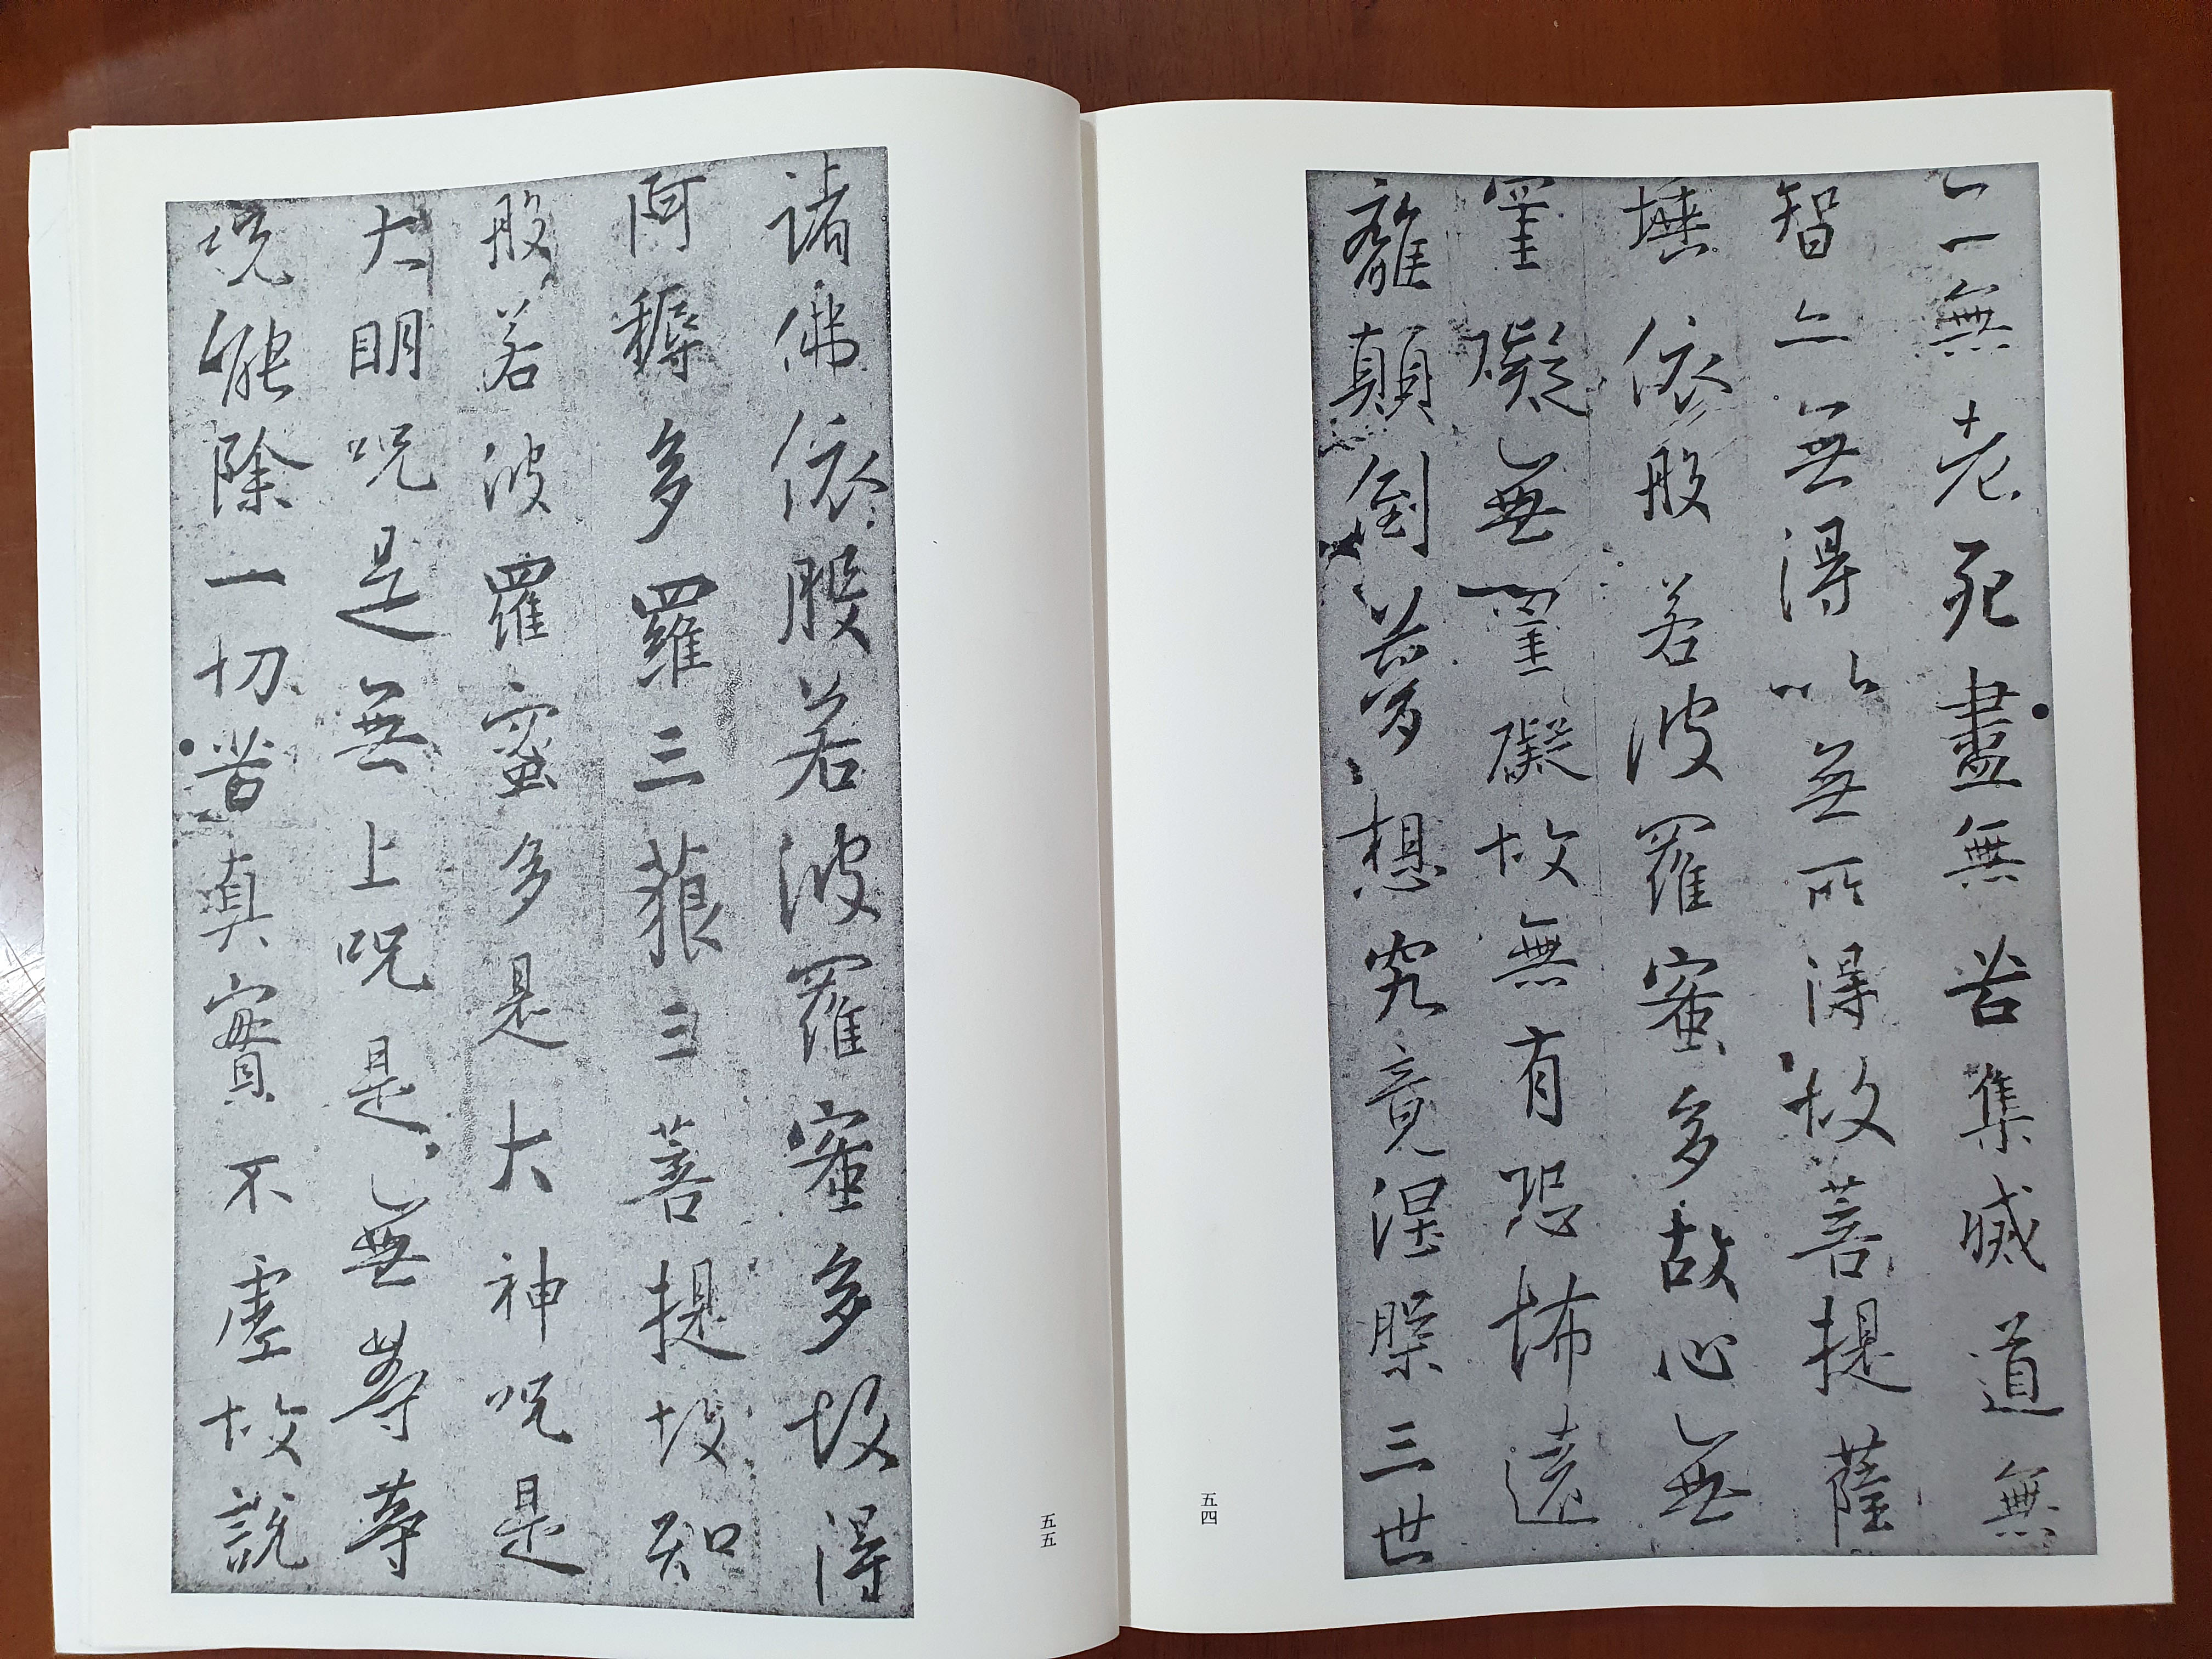 亡無老死盡無苦集滅道無
智亡無得以無所得故菩提薩
埵依般若波羅蜜多故心無
罣礙無罣礙故無有恐怖遠
離顛倒夢想究竟涅槃三世
五四
諸佛依般若波羅蜜多故得
阿耨多羅三藐三菩提故知
般若波羅蜜多是大神呪是
大明呪是無上呪是無等等
呪能除一切苦真實不虛故說
五五